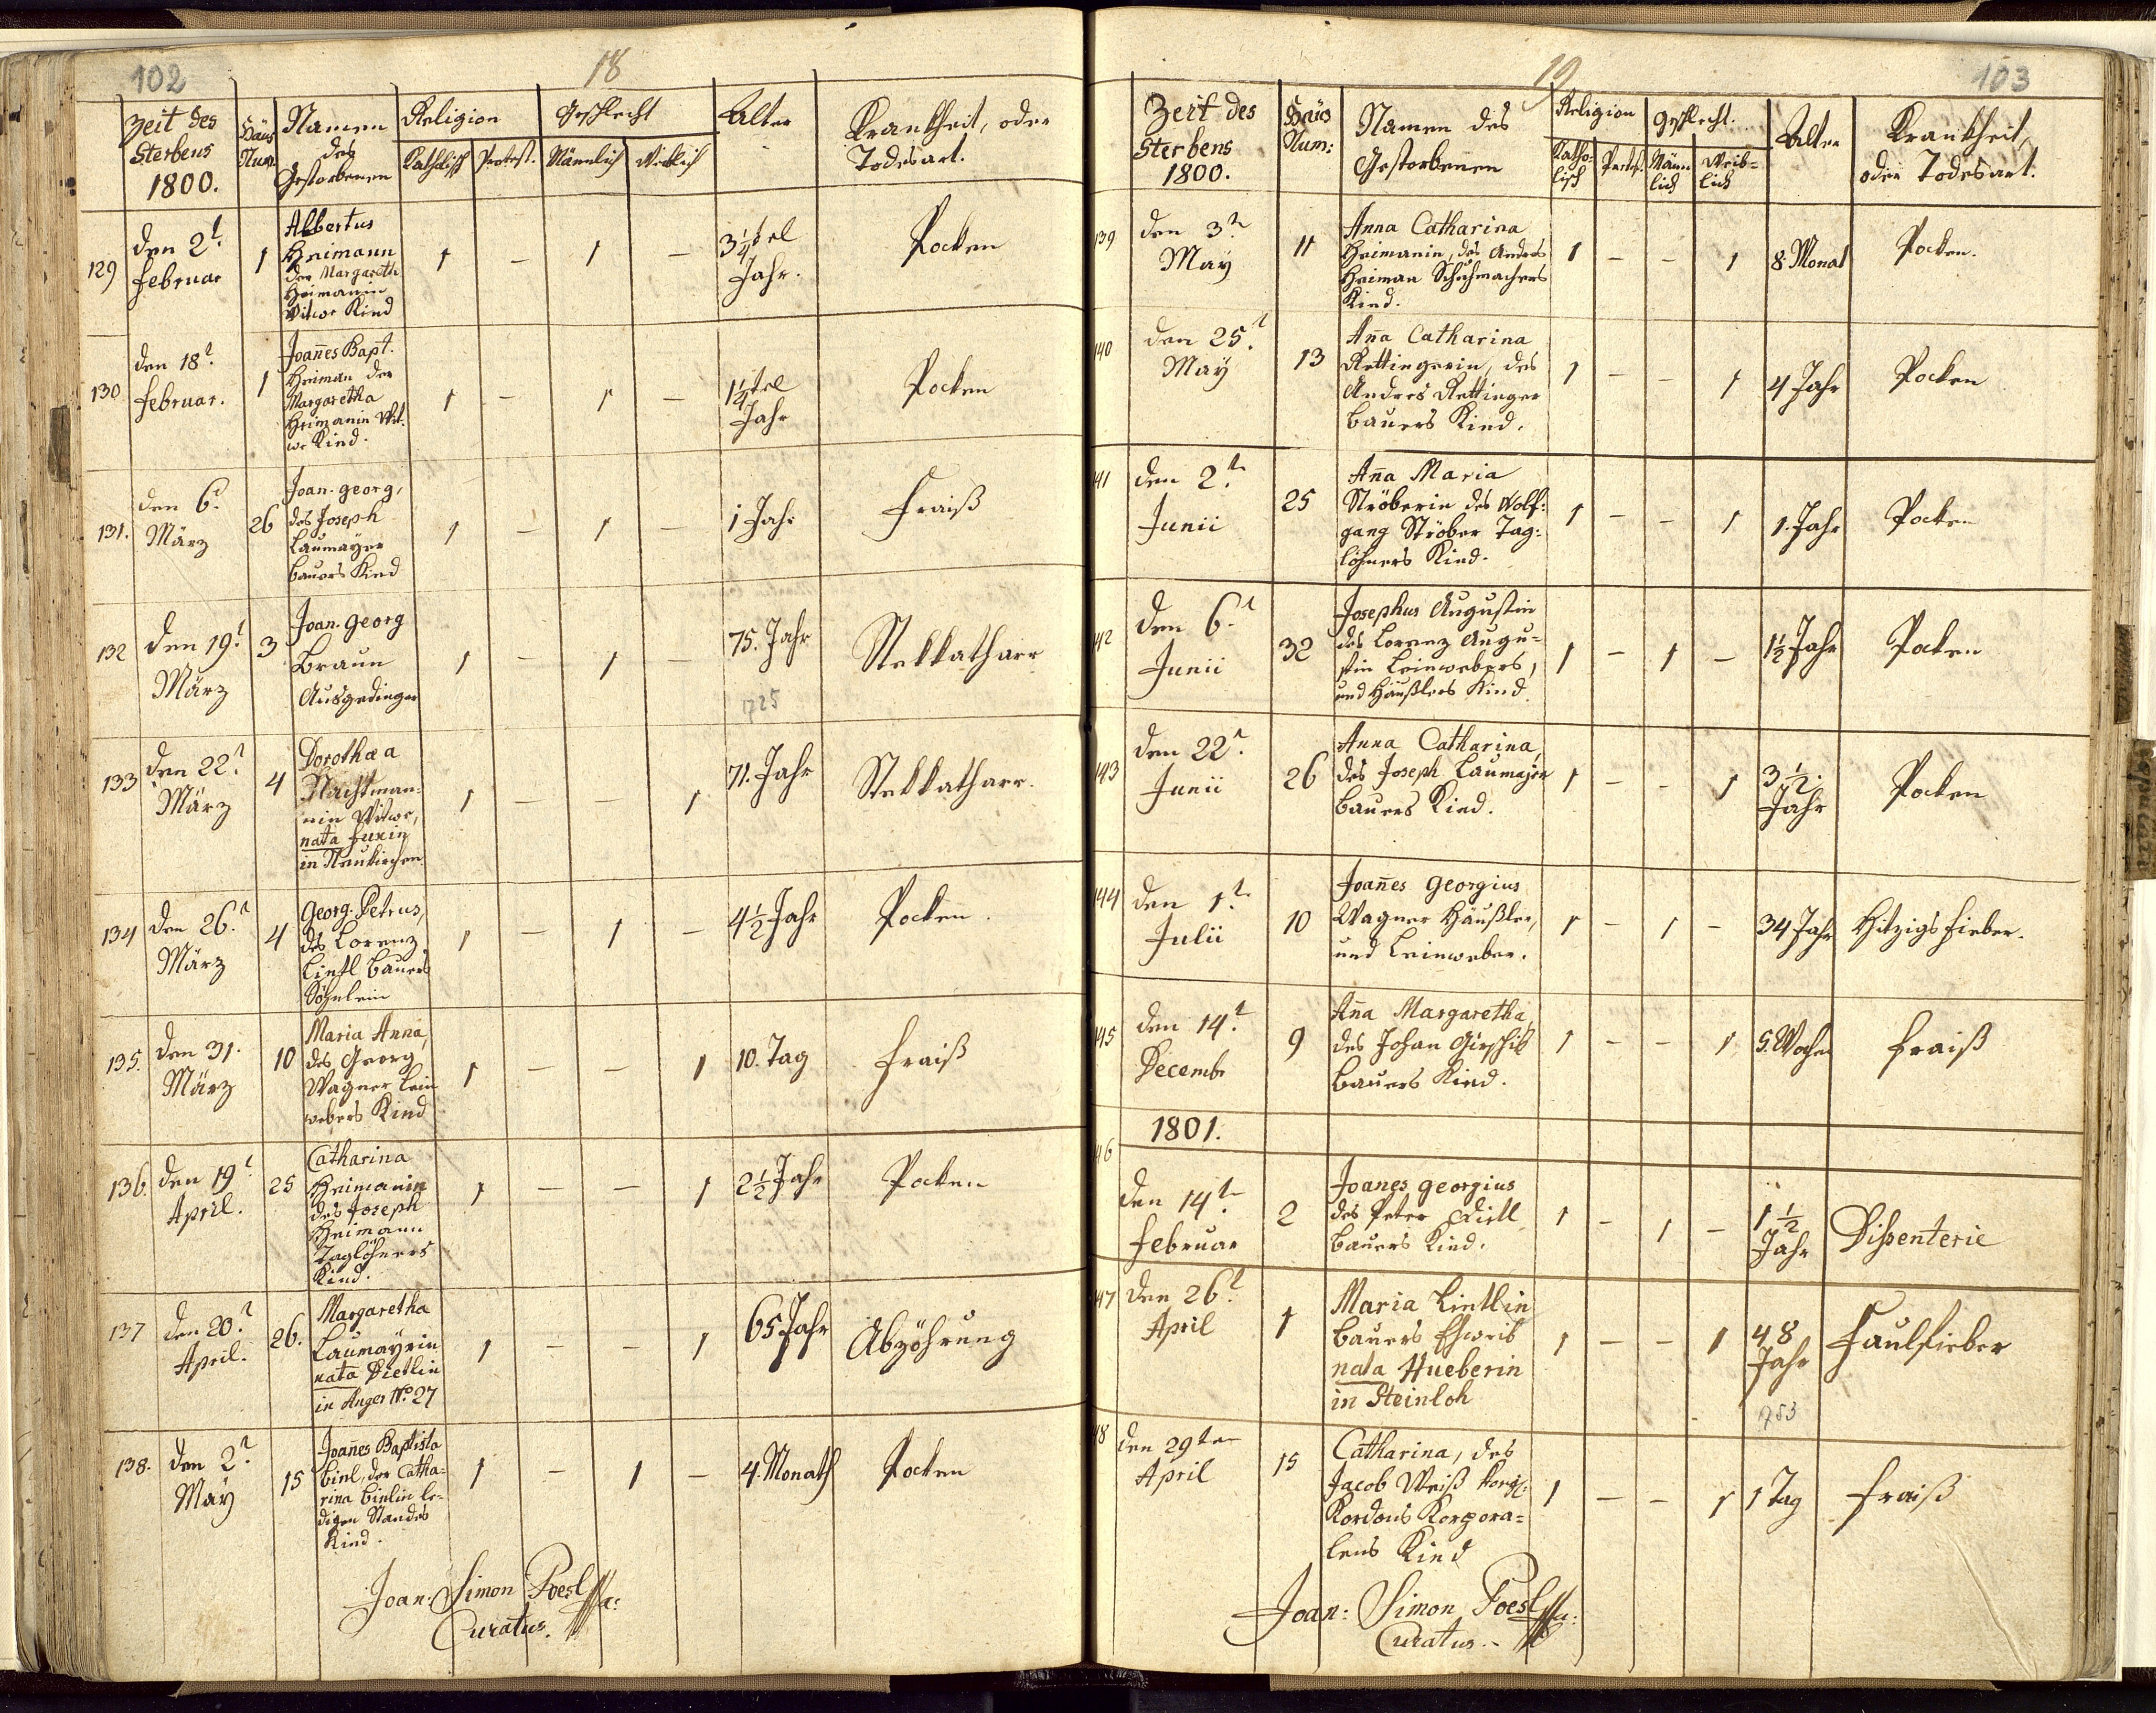 102
18
Zeit des
Sterbens
1800.
Haus
Num.
Namen
des
Gestorbenen
Religion
Katholisch Protest.
Geschlecht
Männlich Weiblich
Alter
Krankheit, oder
Todesart.
129
den 2t.
Februar
1
Albertus
Heimann
der Margareth
Heimanin
Witwe Kind
1 – 1 –
3 1/4 tel
Jahr.
Pocken
130
den 18t.
Februar.
1
Joan̄es Bapt.
Heiman der
Margaretha
Heimanin Wit.
we Kind.
1 – 1 –
1 1/4 tel
Jahr
Pocken
131.
den 6t.
März
26
Joan. georg,
des Joseph
Laumayer
Bauers Kind
1 – 1 –
1 Jahr
Fraiß
132
den 19t.
März
3
Joan. georg
Braun
Ausgedinger
1 – 1 –
75. Jahr
1725
Stekkatharr
133
den 22t.
März
4
Dorothæa
Nachtman-
nin Witwe,
nata Fuxin
in Neukirchen.
1 – – 1
71. Jahr
Stekkatharr.
134
den 26t.
März
4
Georg. Petrus,
des Lorenz
Lietl Bauers
Söhnlein
1 – 1 –
4 1/2 Jahr
Pocken.
135.
den 31.
März
10
Maria Anna,
des Georg
Wagner Lein
webers Kind
1 – – 1
10. Tag
Fraiß
136.
den 19t
April.
25
Catharina
Heimanin
des Joseph
Heimann
Taglöhners
Kind.
1 – – 1
2 1/2 Jahr
Pocken
137
den 20t.
April.
26.
Margaretha
Laumayrin
nata Dietlin
in Anger No. 27
1 – – 1
65 Jahr
Abzöhrung
138.
den 2t.
May
15
Joan̄es Baptista
Binl, der Catha-
rina Binlin le-
digen Standes
Kind.
1 – 1 –
4. Monath
Pocken
Joan: Simon Poesl
Curatus.
19
103
Zeit des
Sterbens
1800.
Haus
Num:
Namen des
Gestorbenen
Religion
Katho-
lisch
Protes.
Geschlecht.
Männ
lich
Weib-
lich
Alter
Krankheit,
oder Todesart.
139
den 3t.
May
11
Anna Catharina
Heimanin, des Andres
Heiman Schuhmachers
Kind.
1 – – 1
8 Monat
Pocken.
140
den 25t.
May
13
An̄a Catharina
Rettingerin, des
Andres Rettinger
Bauers Kind.
1 – – 1
4 Jahr
Pocken
141
den 2t.
Junii
25
An̄a Maria
Ströberin des Wolf-
gang Ströber Tag-
löhners Kind.
1 – – 1
1. Jahr
Pocken
142
den 6t.
Junii
32
Josephus Augustin
des Lorenz Augu-
stin Leinwebers,
und Häußlers Kind.
1 – 1 –
1 1/2 Jahr
Pocken
143
den 22t.
Junii
26
Anna Catharina,
des Joseph Laumajer
Bauers Kind.
1 – – 1
3 1/2.
Jahr
Pocken
144
den 1t.
Julii
10
Joan̄es Georgius
Wagner Häußler,
und Leinweber.
1 – 1 –
34 Jahr
Hitzigs Fieber.
145
den 14t.
Decembr
9
An̄a Margaretha,
des Johan Girschik
Bauers Kind.
1 – – 1
5. Wochen
Fraiß
1801.
146
den 14t.
Februar
2
Joanes georgius
des Peter Dietl
Bauers Kind.
1 – 1 –
1 1/2
Jahr
Dißenterie
147
den 26t.
April
1
Maria Lietlin
Bauers Eheweib
nata Hueberin
in Steinloh
1 – – 1
48
Jahr
1753
Faulfieber
148
den 29ten
April
15
Catharina, des
Jacob Weiß
Kordons Korpora-
lens Kind
1 – – 1
1 Tag
Fraiß
Joan: Simon Poesl
Curatus.